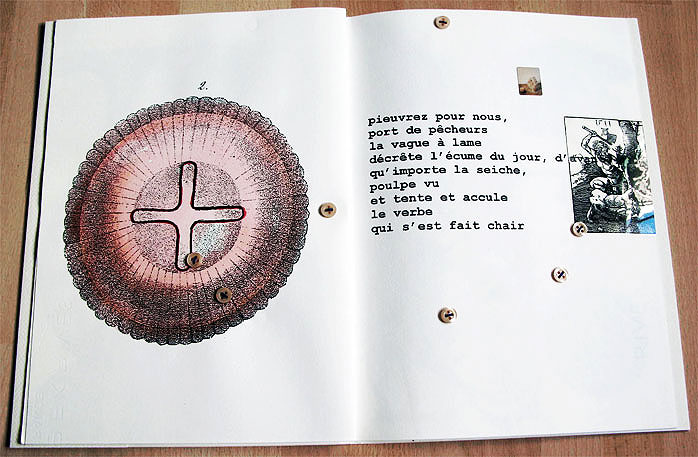 2.
pieuvrez pour nous,
port de pêcheurs
la vague à lame
décrète l'écume du jour, d'avan
qu'importe la seiche,
poulpe vu
et tente et accule
le verbe
qui s'est fait chair